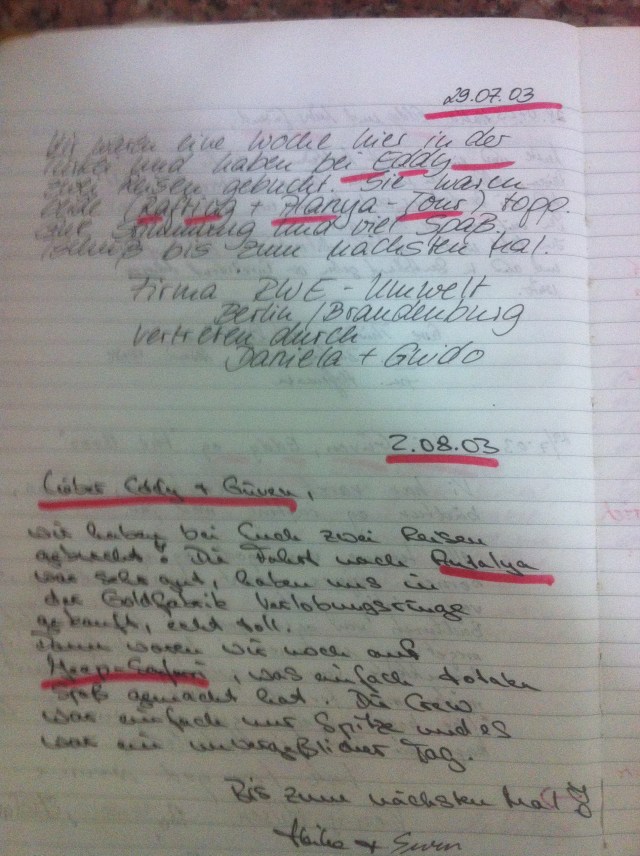 29.07.03
Wir waren eine Woche hier in der
Türkei und haben bei Eddy
zwei Reisen gebucht. Sie waren
beide (Rafting + Alanya-Tour) topp.
gute Stimmung und viel Spaß.
Tschüß bis zum nächsten Mal.
Firma RWE - Umwelt
Berlin/Brandenburg
vertreten durch
Daniela + Guido
2.08.03
Lieber Eddy + Güven,
wir haben bei Euch zwei Reisen
gebucht! Die Fahrt nach Antalya
war sehr gut, haben uns in
der Goldfabrik Verlobungsringe
gekauft, echt toll.
Dann waren wir noch auf
Jeep-Safari, was einfach totalen
Spaß gemacht hat. Die Crew
war einfach nur Spitze und es
war ein unvergeßlicher Tag.
Bis zum nächsten Mal